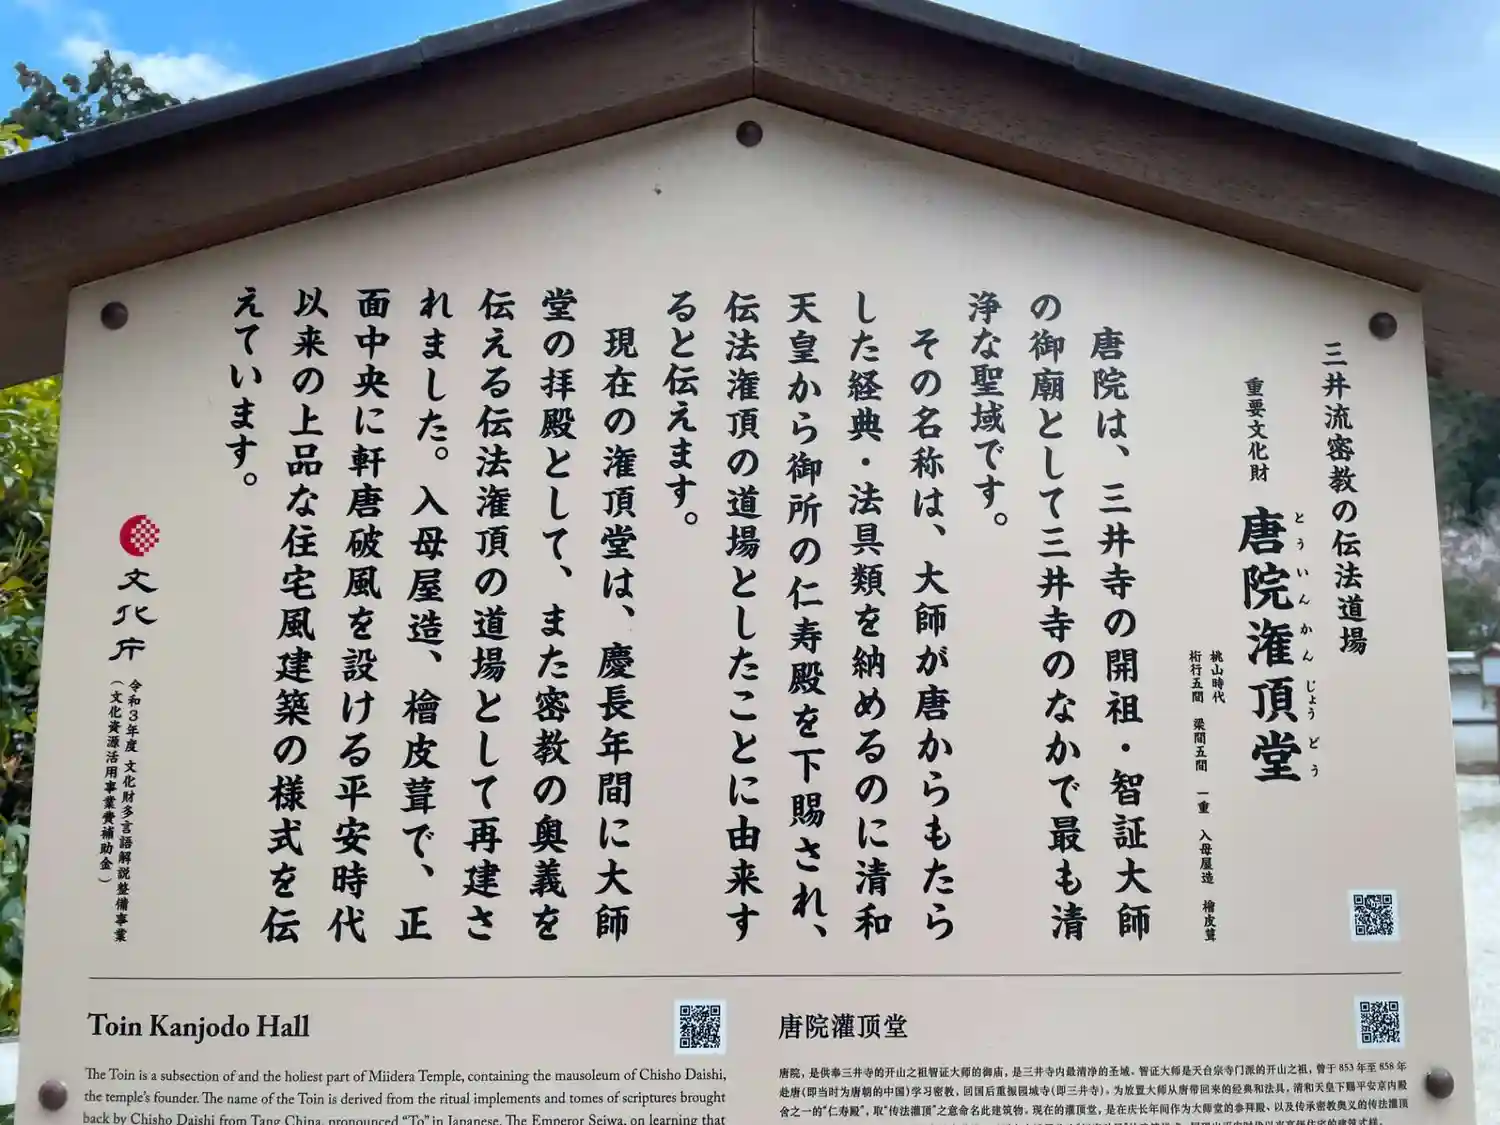 三井流密教の伝法道場
重要文化財 唐院潅頂堂
とういんかんじょうどう
桃山時代
桁行五間 梁間五間 一重 入母屋造 檜皮葺
唐院は、三井寺の開祖・智証大師
の御廟として三井寺のなかで最も清
浄な聖域です。
その名称は、大師が唐からもたら
した経典・法具類を納めるのに清和
天皇から御所の仁寿殿を下賜され、
伝法潅頂の道場としたことに由来す
ると伝えます。
現在の潅頂堂は、慶長年間に大師
堂の拝殿として、また密教の奥義を
伝える伝法潅頂の道場として再建さ
れました。入母屋造、檜皮葺で、正
面中央に軒唐破風を設ける平安時代
以来の上品な住宅風建築の様式を伝
えています。
文化庁
令和3年度 文化財多言語解説整備事業
(文化資源活用事業費補助金)
Toin Kanjodo Hall
The Toin is a subsection of and the holiest part of Miidera Temple, containing the mausoleum of Chisho Daishi,
the temple's founder. The name of the Toin is derived from the ritual implements and tomes of scriptures brought
back by Chisho Daishi from Tang China, pronounced "To" in Japanese. The Emperor Seiwa, on learning that
唐院灌顶堂
唐院，是供奉三井寺的开山之祖智证大师的御庙，是三井寺内最清净的圣域。智证大师是天台宗寺门派的开山之祖，曾于 853 年至 858 年
赴唐（即当时为唐朝的中国）学习密教，回国后重振园城寺（即三井寺），为放置大师从唐带回来的经典和法具，清和天皇下赐平安京内殿
舍之一的“仁寿殿”，取“传法灌顶”之意命名此建筑物。现在的灌顶堂，是在庆长年间作为大师堂的参拜殿、以及传承密教奥义的传法灌顶